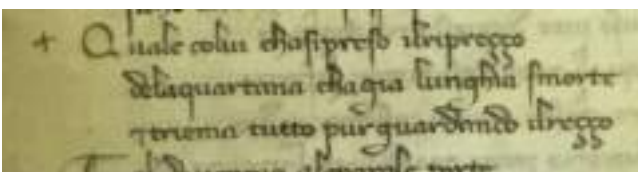 + Quale colui chasipreso ilriprezzo
delaquartana chagia lunghia smorte
⁊ triema tutto pur guardando ilrezzo